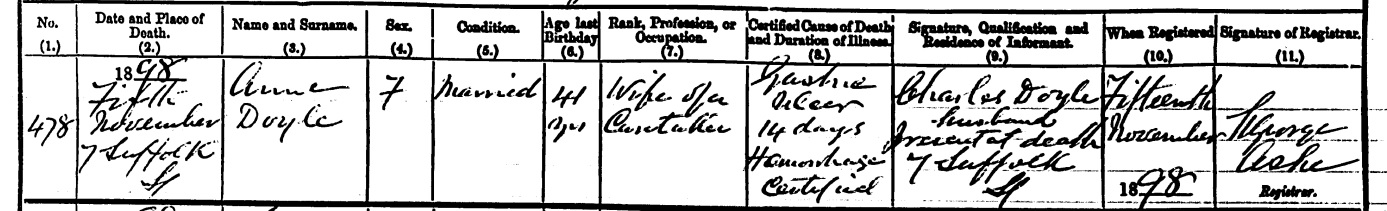 No.
(1.)
Date and Place of
Death.
(2.)
Name and Surname.
(3.)
Sex.
(4.)
Condition.
(5.)
Age last
Birthday
(6.)
Rank, Profession, or
Occupation.
(7.)
Certified Cause of Death
and Duration of Illness.
(8.)
Signature, Qualification and
Residence of Informant.
(9.)
When Registered
(10.)
Signature of Registrar.
(11.)
478
1898
Fifth
November
7 Suffolk
St
Anne
Doyle
F
Married
41
yrs
Wife of a
Caretaker
Gastric
Ulcer
14 days
Hemorrhage
Certified
Charles Doyle
Husband
Present at death
7 Suffolk
St
Fifteenth
November
1898
George
Ashe
Registrar.